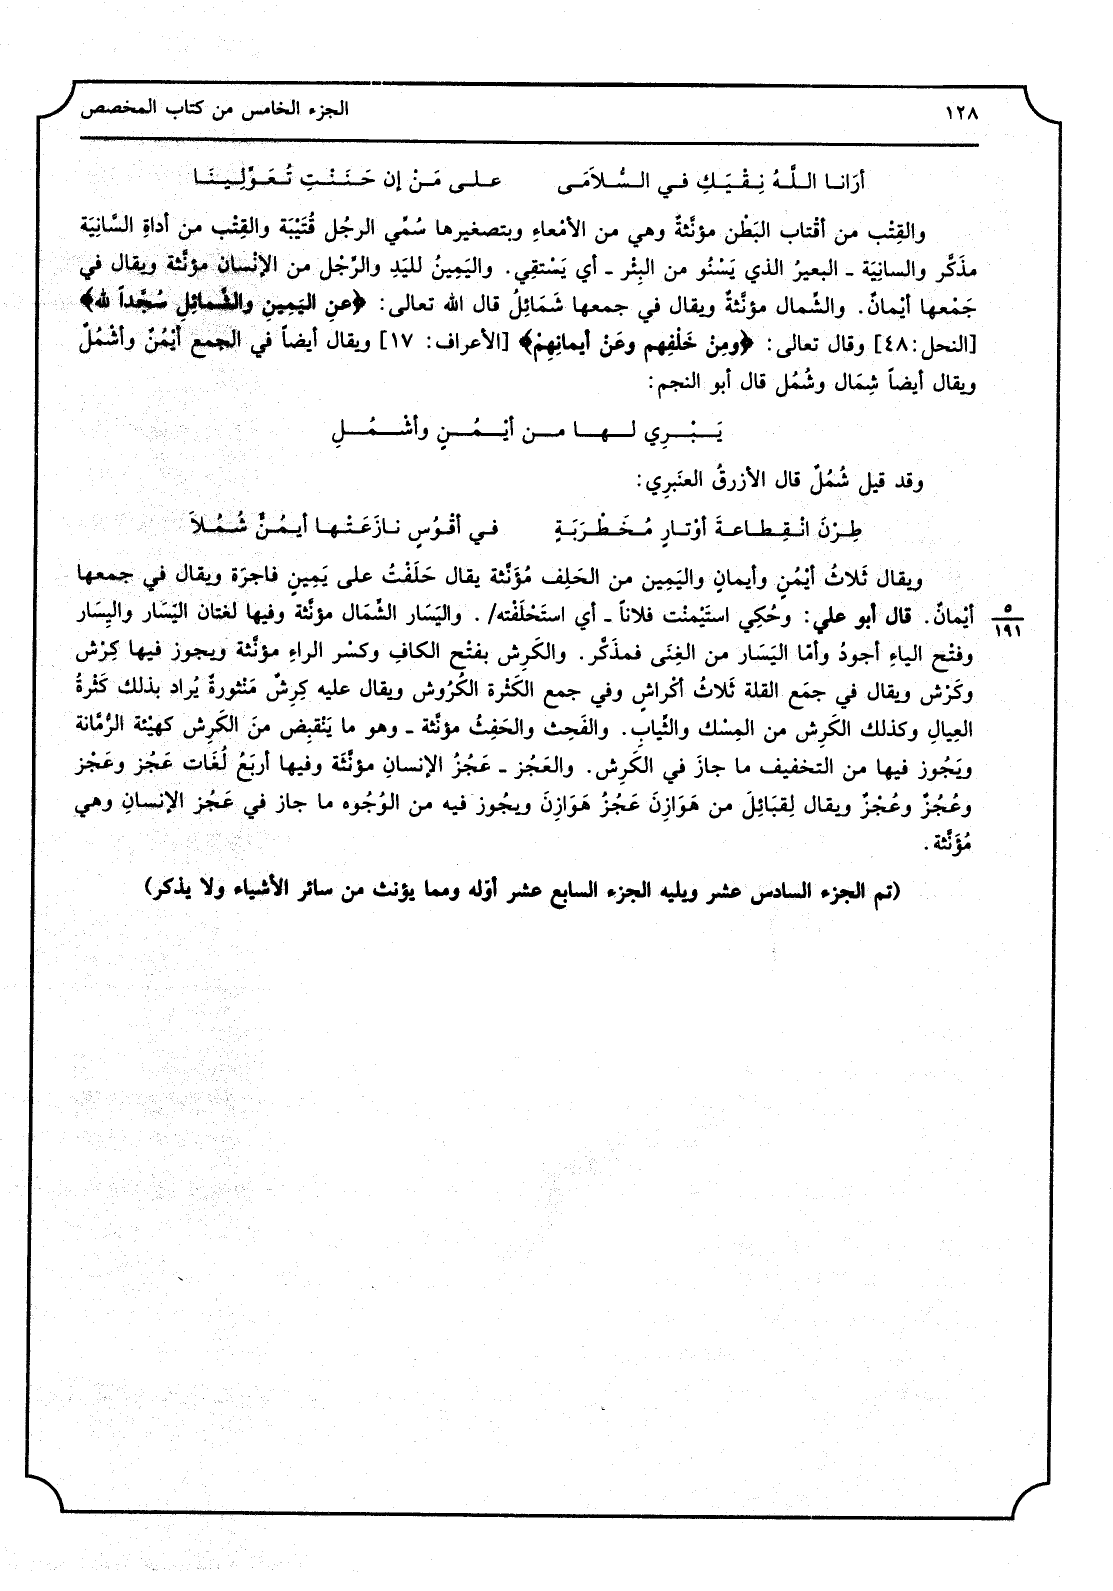 ١٢٨ الجزء الخامس من كتاب المخصص
أرَانـا الـلَّـهُ نِـقْـيَـكِ فـي الـسُّـلاَمَـى عـلـى مَـنْ إن حَـنَـنْـتِ تُـعَـوِّلِـيـنَـا
والقِتْب من أقْتاب البَطْن مؤنَّثةٌ وهي من الأمْعاءِ وبتصغيرها سُمِّي الرجُل قُتَيْبَة والقِتْب من أداةِ السَّانِيَة
مذَكَّر والسانِيَة ـ البعيرُ الذي يَسْنُو من البِئْر ـ أي يَسْتقِي. واليَمِينُ لليَدِ والرِّجْل من الإنْسان مؤنَّثة ويقال في
جَمْعها أيْمانٌ. والشِّمال مؤنَّثةٌ ويقال في جمعها شَمَائِلُ قال الله تعالى: ﴿عنِ اليَمِينِ والشَّمائِلِ سُجَّداً لله﴾
[النحل:٤٨] وقال تعالى: ﴿ومِنْ خَلْفِهم وعَنْ أيمانِهِمْ﴾ [الأعراف: ١٧] ويقال أيضاً في الجمع أيْمُنٌ وأشْمُلٌ
ويقال أيضاً شِمَال وشُمُل قال أبو النجم:
يَـــبْـــرِي لـــهـــا مـــن أيْـــمُـــنٍ وأشْـــمُـــلِ
وقد قيل شُمُلٌ قال الأزرقُ العنَبرِي:
طِـرْنَ انْـقِـطـاعـةَ أوْتـارٍ مُـخَـطْـرَبَـةٍ فـي أقْـوُسٍ نـازَعَـتْـهـا أيـمُـنٌ شُـمُـلاَ
ويقال ثَلاثُ أيْمُنٍ وأيمانٍ واليَمِين من الحَلِف مُؤَنَّثة يقال حَلَفْتُ على يَمِينٍ فاجرَة ويقال في جمعها
٥
١٩١
أيْمانٌ. قال أبو علي: وحُكِي استَيْمنْت فلاناً ـ أي استَحْلَفْته/. واليَسَار الشِّمال مؤنَّثة وفيها لغتان اليَسَار واليِسَار
وفتْح الياءِ أجودُ وأمّا اليَسَار من الغِنَى فمذَكَّر. والكَرِش بفتْح الكافِ وكسْر الراءِ مؤنَّثة ويجوز فيها كِرْش
وكَرْش ويقال في جمَع القلة ثَلاثُ أكْراش وفي جمع الكَثْرة الكُرُوش ويقال عليه كِرِشٌ مَنْثورةٌ يُراد بذلك كَثْرةُ
العِيالِ وكذلك الكَرِش من المِسْك والثِّيابِ. والفَحِث والحَفِثُ مؤنَّثة ـ وهو ما يَنْقبِض منَ الكَرِش كهيْئة الرُّمَّانة
ويَجُوز فيها من التخفيف ما جازَ في الكَرِش. والعَجُز ـ عَجُزُ الإنسانِ مؤنَّثَة وفيها أربَعُ لُغَات عَجُز وعَجْز
وعُجُزٌ وعُجْزٌ ويقال لِقبَائِلَ من هَوَازِنَ عَجُزُ هَوَازِنَ ويجُوز فيه من الوُجُوه ما جاز في عَجُز الإنسانِ وهي
مُؤَنَّثة.
(تم الجزء السادس عشر ويليه الجزء السابع عشر أوّله ومما يؤنث من سائر الأشياء ولا يذكر)